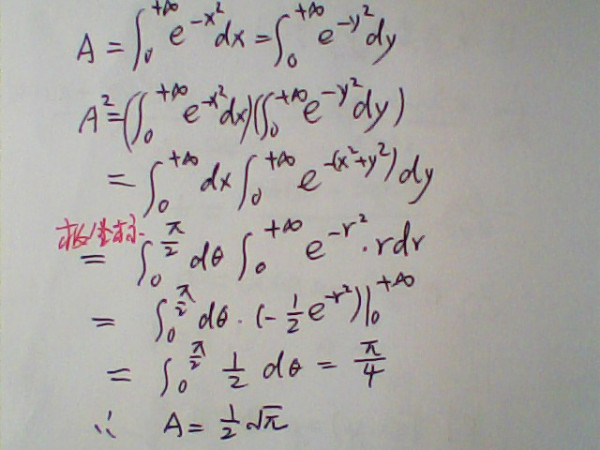 A = ∫₀^{+∞} e^{-x²} dx = ∫₀^{+∞} e^{-y²} dy
A² = (∫₀^{+∞} e^{-x²} dx)(∫₀^{+∞} e^{-y²} dy)
= ∫₀^{+∞} dx ∫₀^{+∞} e^{-(x²+y²)} dy
极坐标
= ∫₀^{π/2} dθ ∫₀^{+∞} e^{-r²} · r dr
= ∫₀^{π/2} dθ · (-1/2 e^{-r²})|₀^{+∞}
= ∫₀^{π/2} 1/2 dθ = π/4
∴ A = 1/2 √π